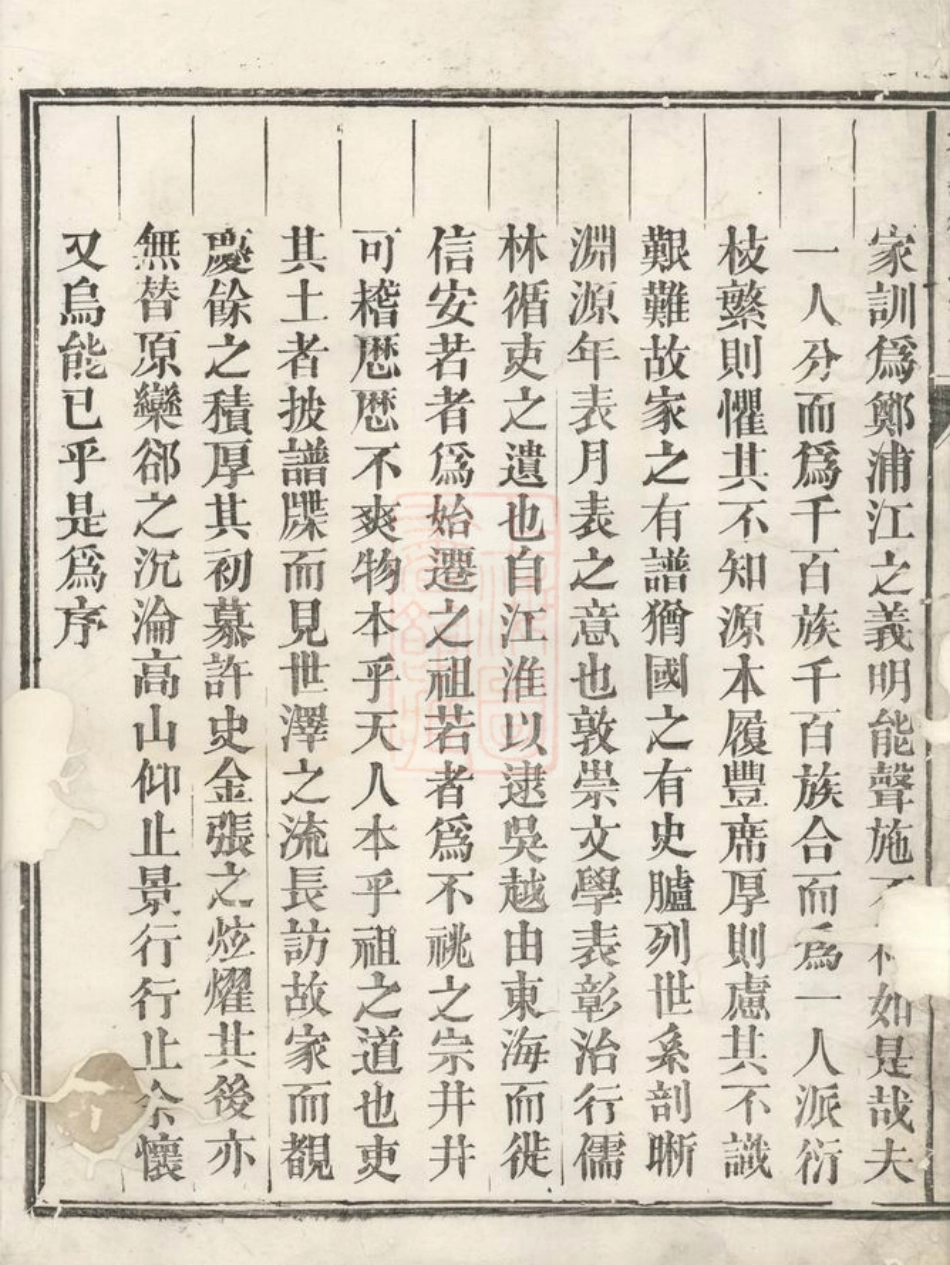 家訓爲鄭浦江之義明能聲施不 如是哉夫
一人分而爲千百族千百族合而爲一人派衍
枝繁則懼其不知源本履豐席厚則慮其不識
艱難故家之有譜猶國之有史臚列世系剖晰
淵源年表月表之意也敦崇文學表彰治行儒
林循吏之遺也自江淮以逮吳越由東海而徙
信安若者爲始遷之祖若者爲不祧之宗井井
可稽歴歴不爽物本乎天人本乎祖之道也吏
其土者披譜牒而見世澤之流長訪故家而覩
慶餘之積厚其初慕許史金張之炫燿其後亦
無替原欒郤之沉淪高山仰止景行行止余懷
又烏能已乎是爲序